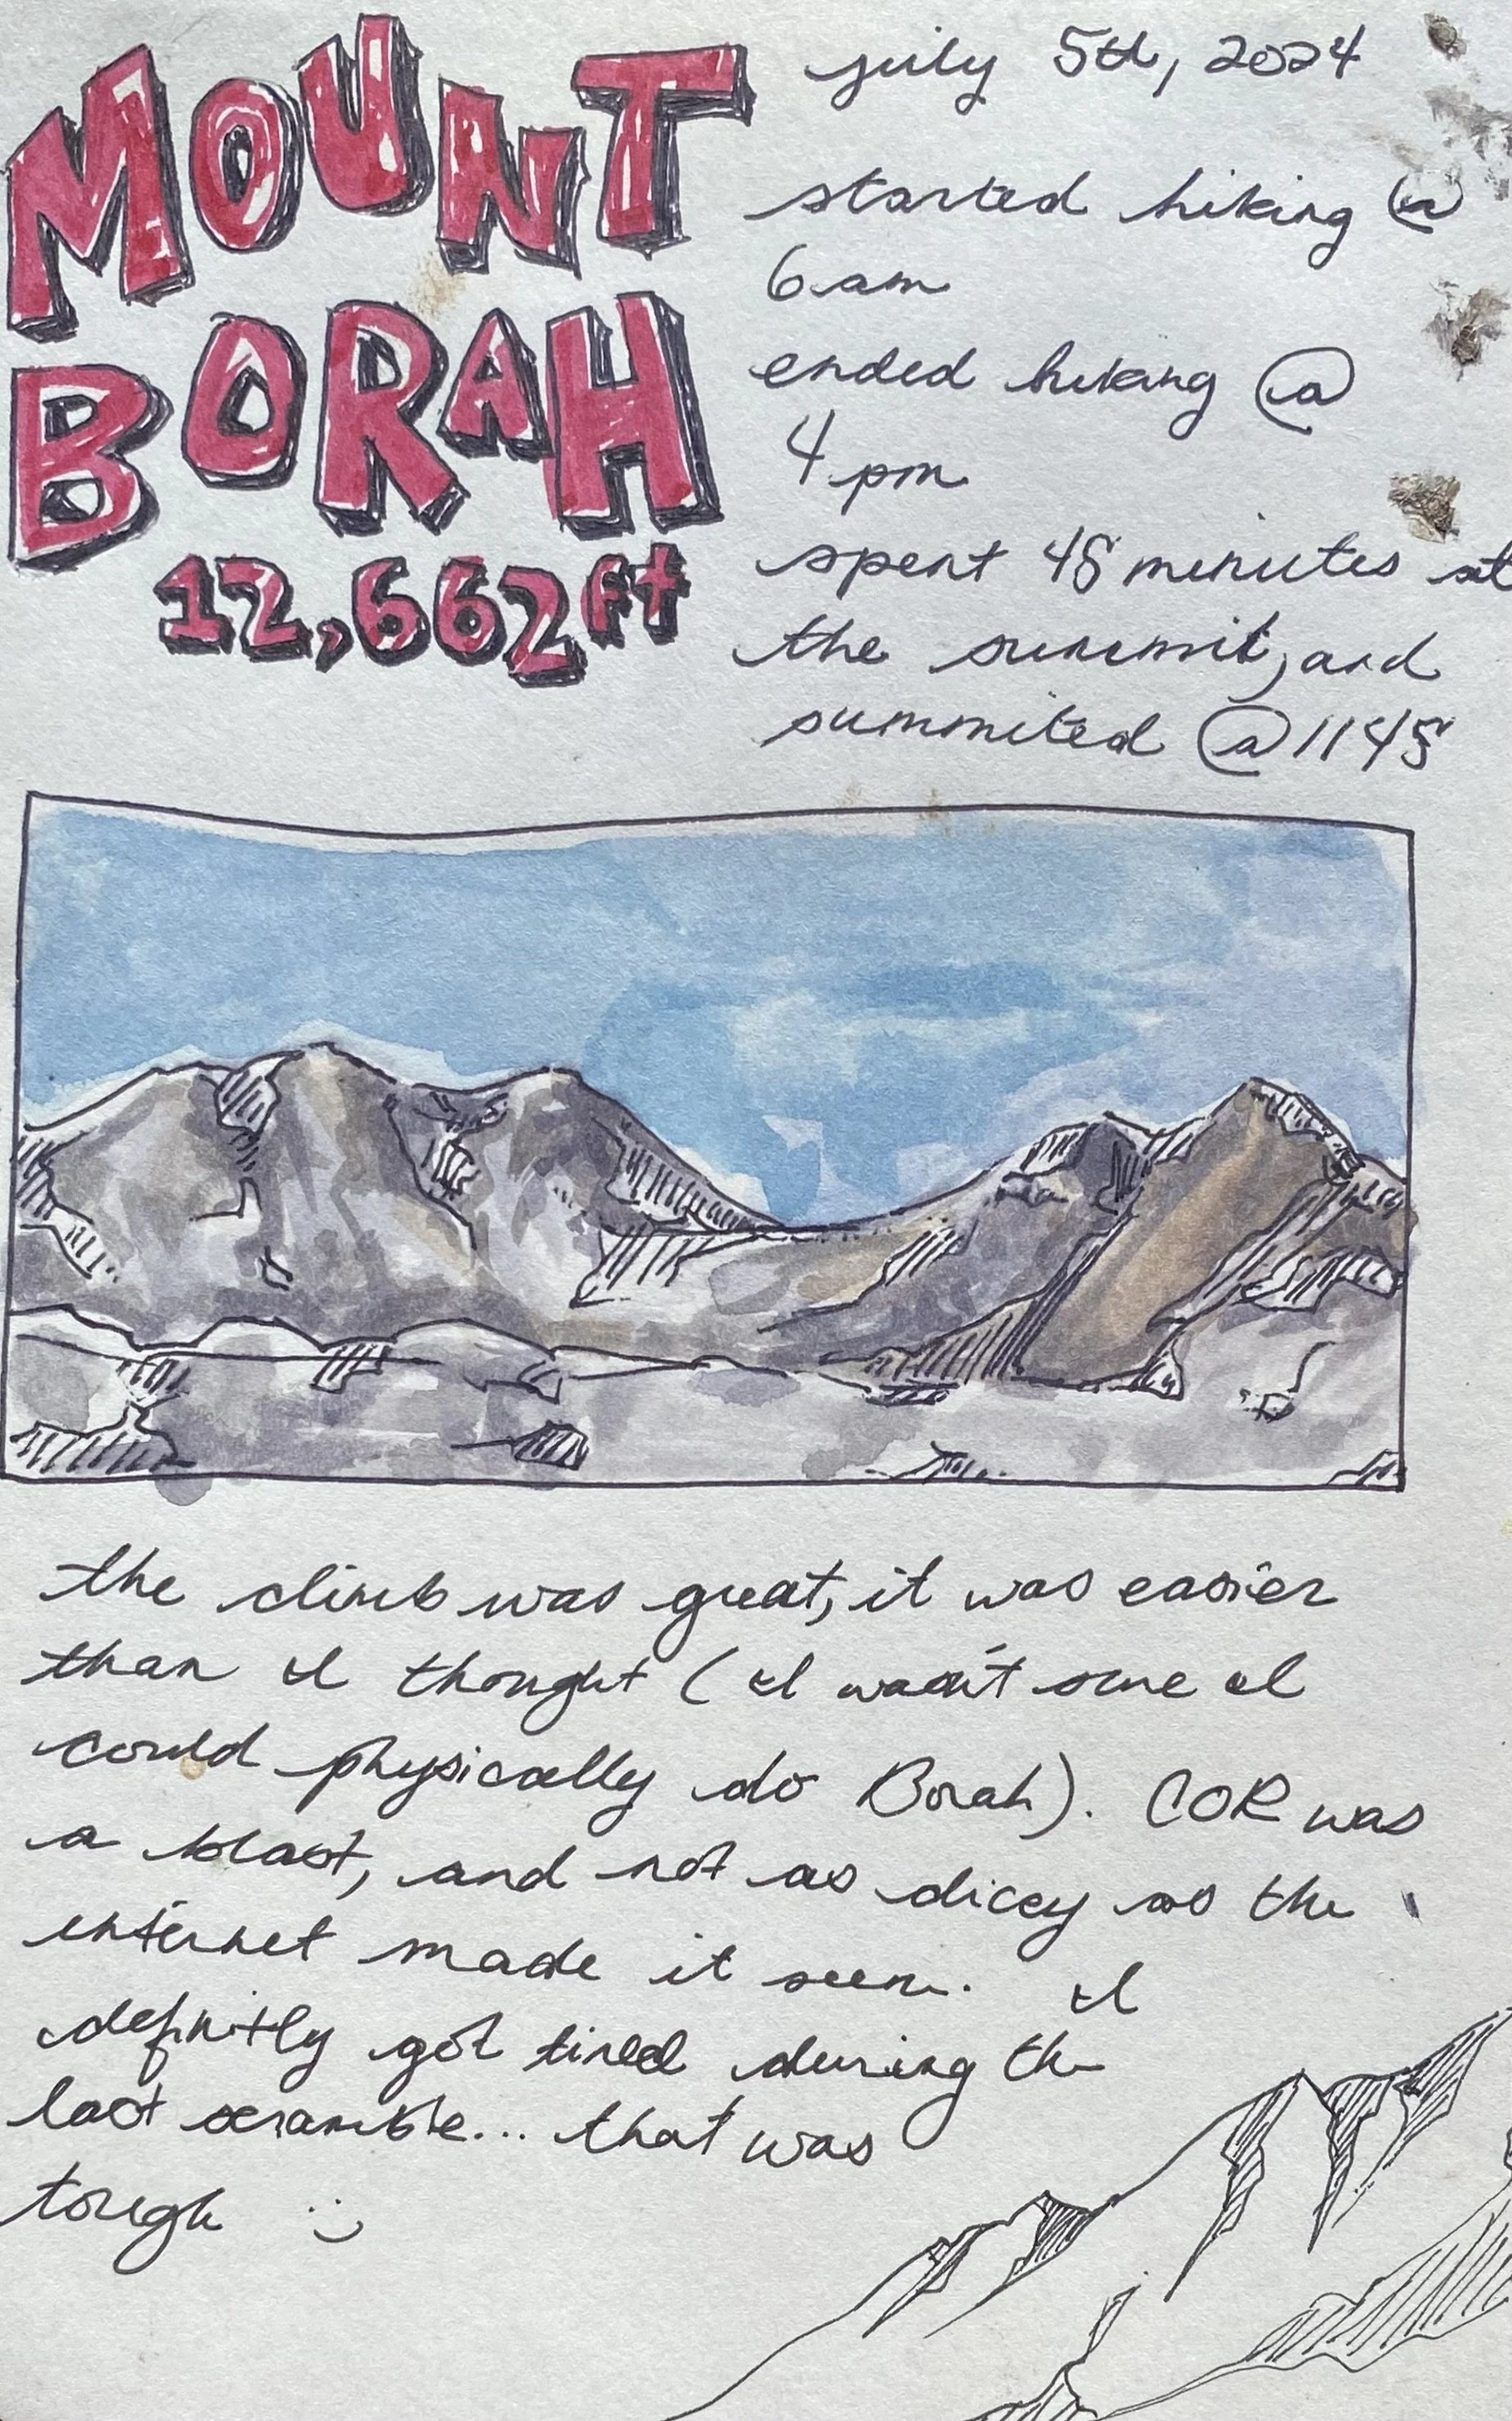 MOUNT
BORAH
12,662ft
july 5th, 2024
started hiking @
6am
ended hiking @
4pm
spent 45 minutes at
the summit, and
summited @ 1145
the climb was great, it was easier
than I thought (I wasn't sure I
could physically do Borah). COR was
a blast, and not as dicey as the
internet made it seem. I
definitly got tired during the
last scramble... that was
tough :)